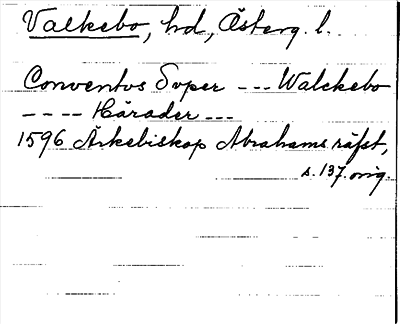 Valkebo, hd, Österg. l.
Conventvs Svper --- Walckebo
---- Härader ---
1596 Ärkebiskop Abrahams räfst,
s. 137. orig.